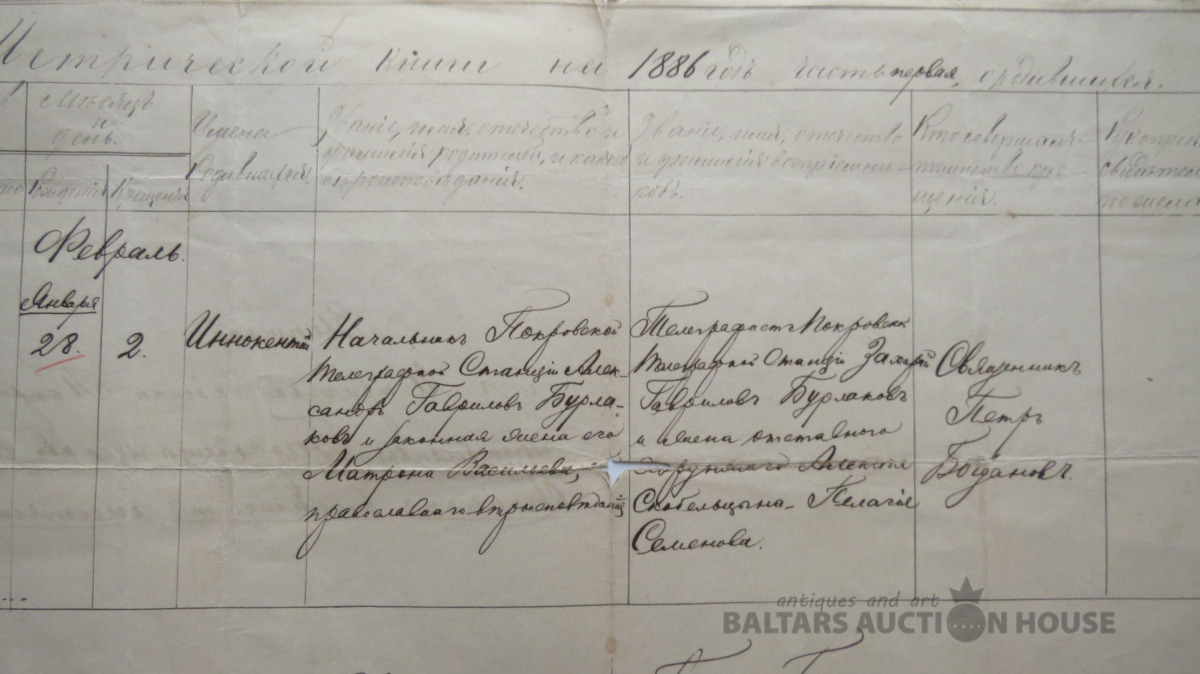 Метрической книги на 1886 годъ часть первая, о родившихся.
Мѣсяцъ
и
день.
Рожденія
Крещенія
Имена
Родившихся.
Званіе, имя, отчество и
фамилія родителей, и какого
вѣроисповѣданія.
Званіе, имя, отчество
и фамилія воспріемни-
ковъ.
Кто совершалъ
таинство кре-
щенія.
Февраль.
Января
28.
2.
Иннокентій
Начальникъ Покровской
Телеграфной Станціи Алек-
сандръ Гавриловъ Бурла-
ковъ и законная жена его
Матрона Васильева,
православнаго вѣроисповѣданія
Телеграфистъ Покровской
Телеграфной Станціи Захарій
Гавриловъ Бурлаковъ
и жена отставного
Хорунжаго Алексѣя
Скобельцына Пелагія
Семенова.
Священникъ
Петръ
Богдановъ.
antiques and art
BALTARS AUCTION HOUSE